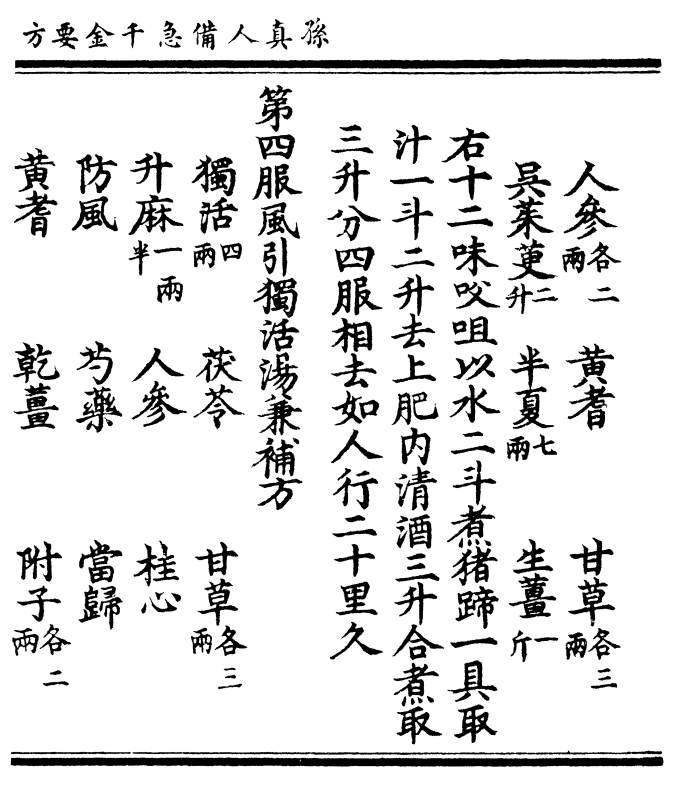 孫真人備急千金要方
人參各二兩 黃耆 甘草各三兩
吳茱萸二升 半夏七兩 生薑一斤
右十二味㕮咀以水二斗煮猪蹄一具取
汁一斗二升去上肥内清酒三升合煮取
三升分四服相去如人行二十里久
第四服風引獨活湯兼補方
獨活四兩 茯苓 甘草各三兩
升麻一兩半 人參 桂心
防風 芍藥 當歸
黃耆 乾薑 附子各二兩